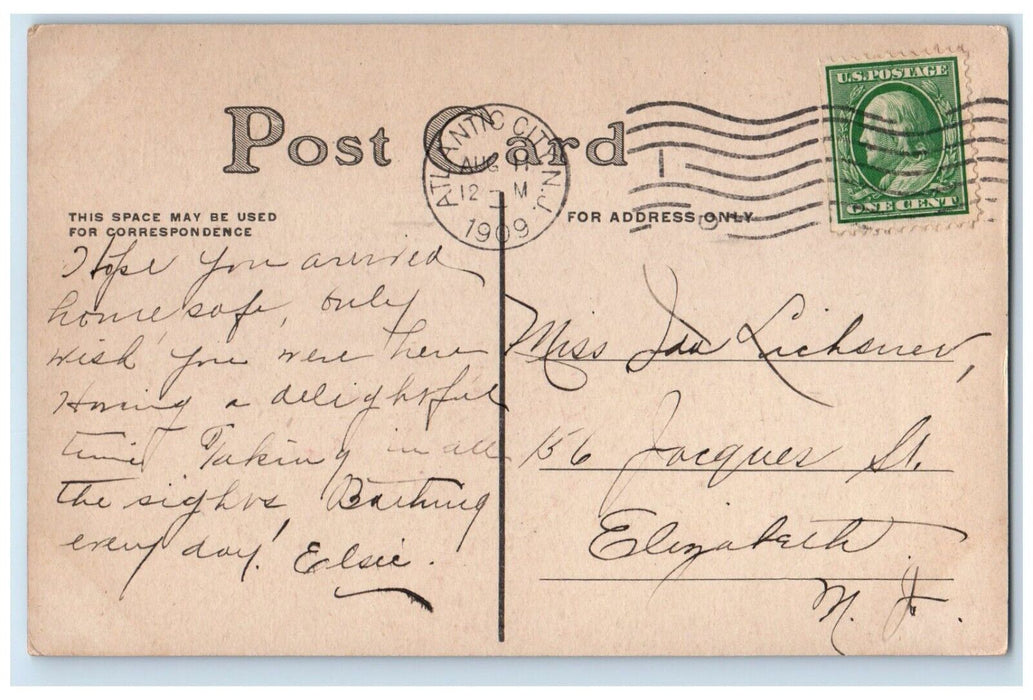 Post Card
ATLANTIC CITY, N.J.
AUG 11
12 - M
1909
U.S. POSTAGE
ONE CENT
THIS SPACE MAY BE USED
FOR CORRESPONDENCE
FOR ADDRESS ONLY
Hope you arrived
home safe, only
wish you were here
Having a delightful
time Taking in all
the sights Bathing
every day! Elsie.
Miss Ida Lichsner,
156 Jacques St.
Elizabeth
N. J.